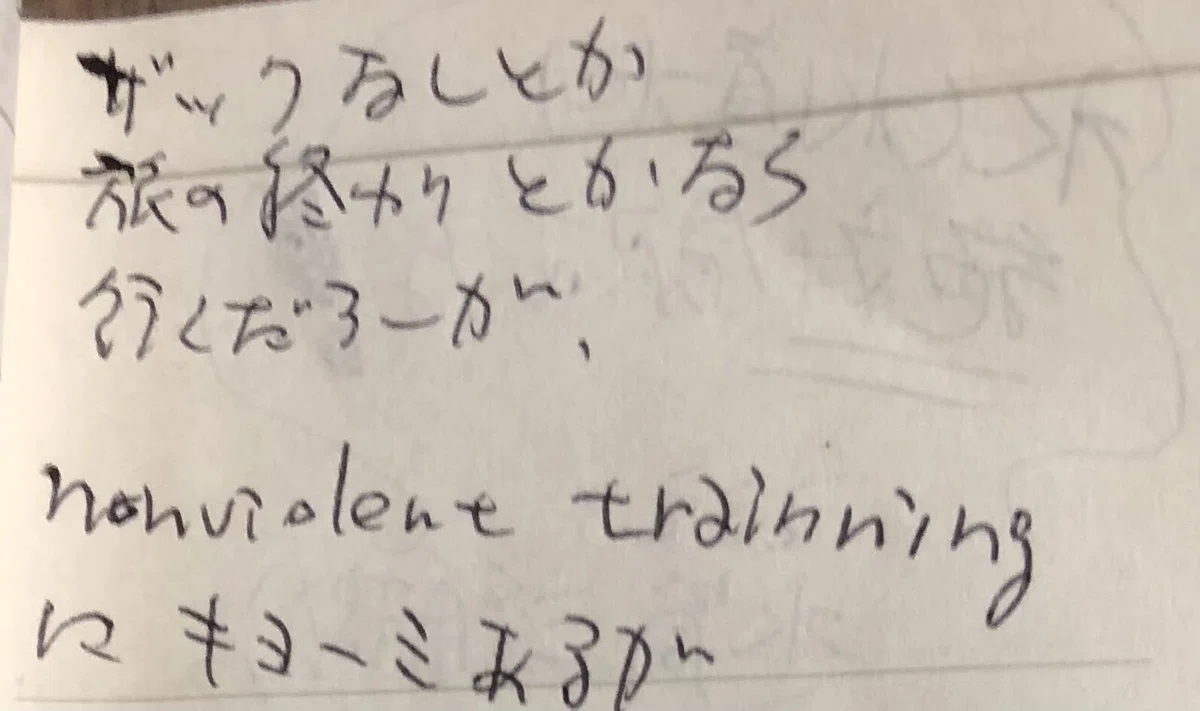 ザックなしとか
旅の終わりとかなら
行くだろーが、
nonviolent trainning
にキョーミあるが